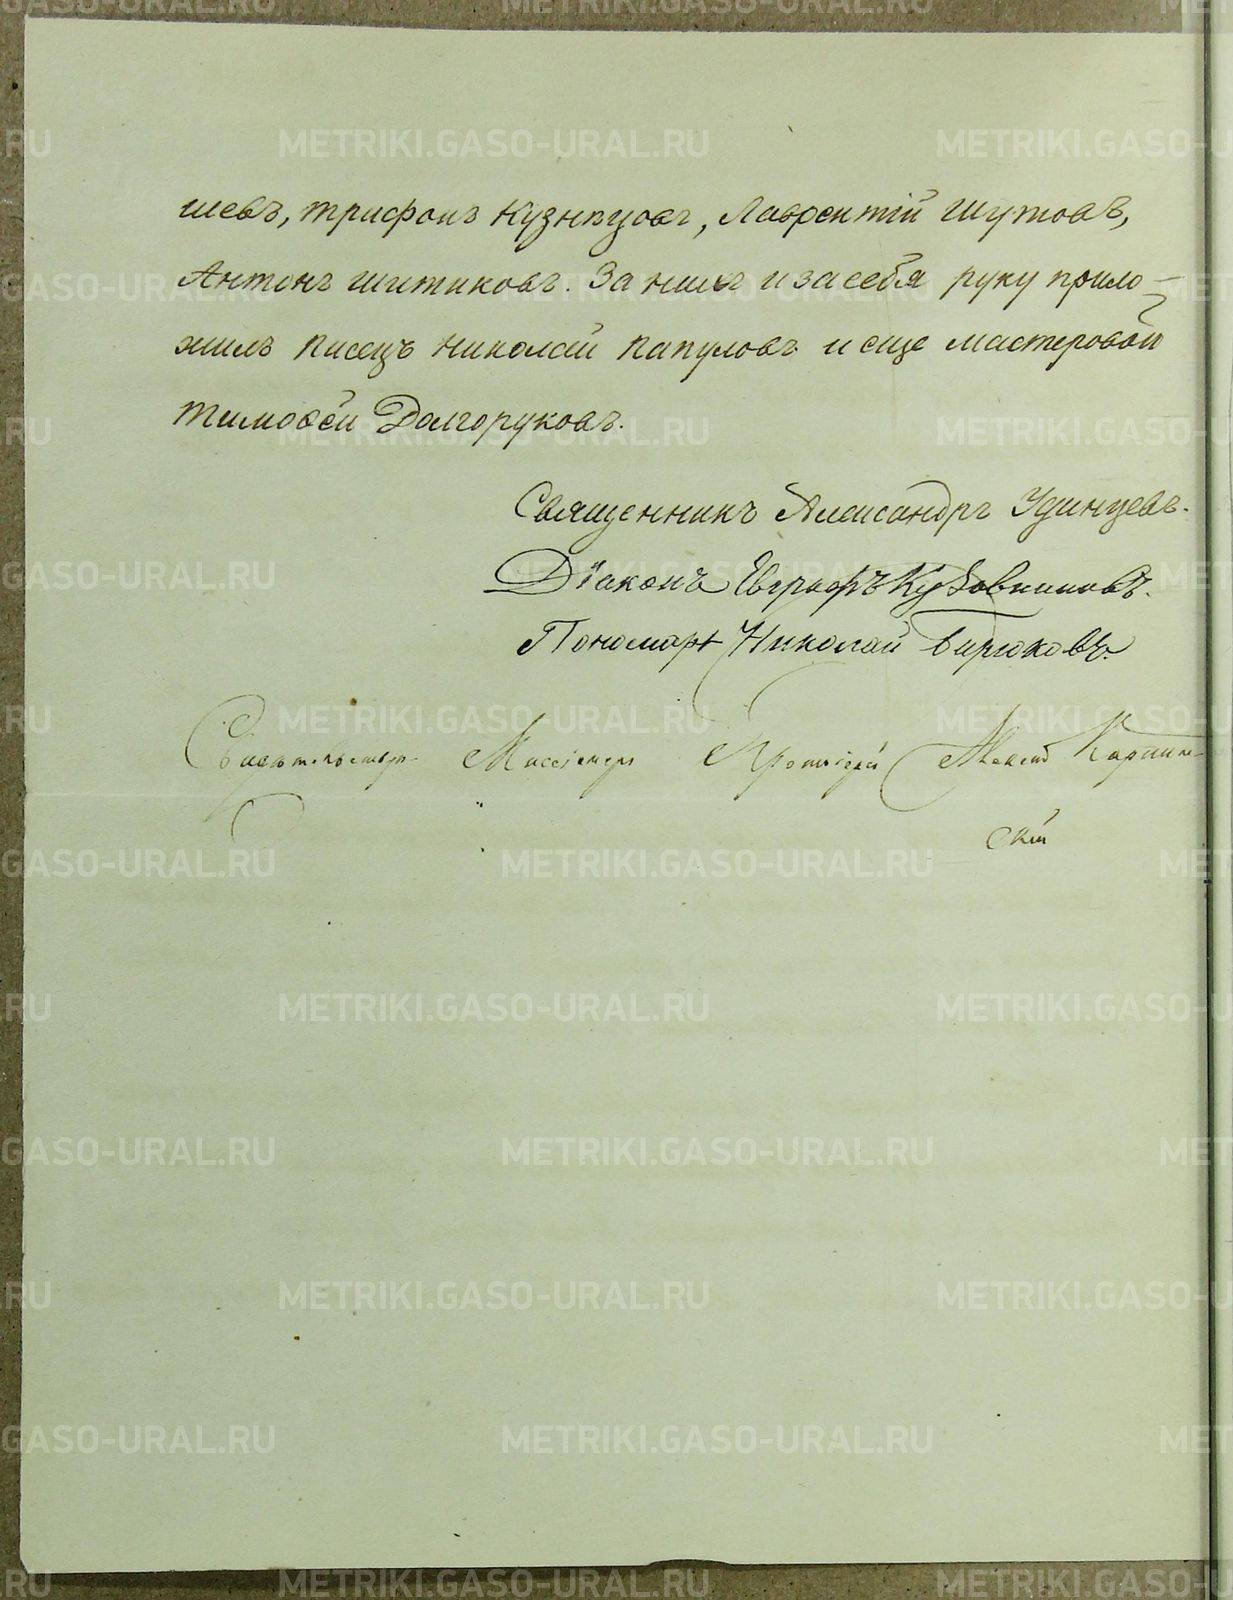 шевъ, Трифонъ Кузнецовъ, Лаврентій Шутовъ,
Антонъ Шитиковъ. За нихъ и за себя руку прило-
жилъ писецъ Николай Папуловъ и еще мастеровой
Тимофей Долгоруковъ.
Священникъ Александръ Удинцевъ.
Діаконъ Евграфъ Кубовниковъ.
Пономарь Николай Бирюковъ.
Свидетельствов. Миссіонеръ Протоіерей Алексей Карпин-
скій
METRIKI.GASO-URAL.RU